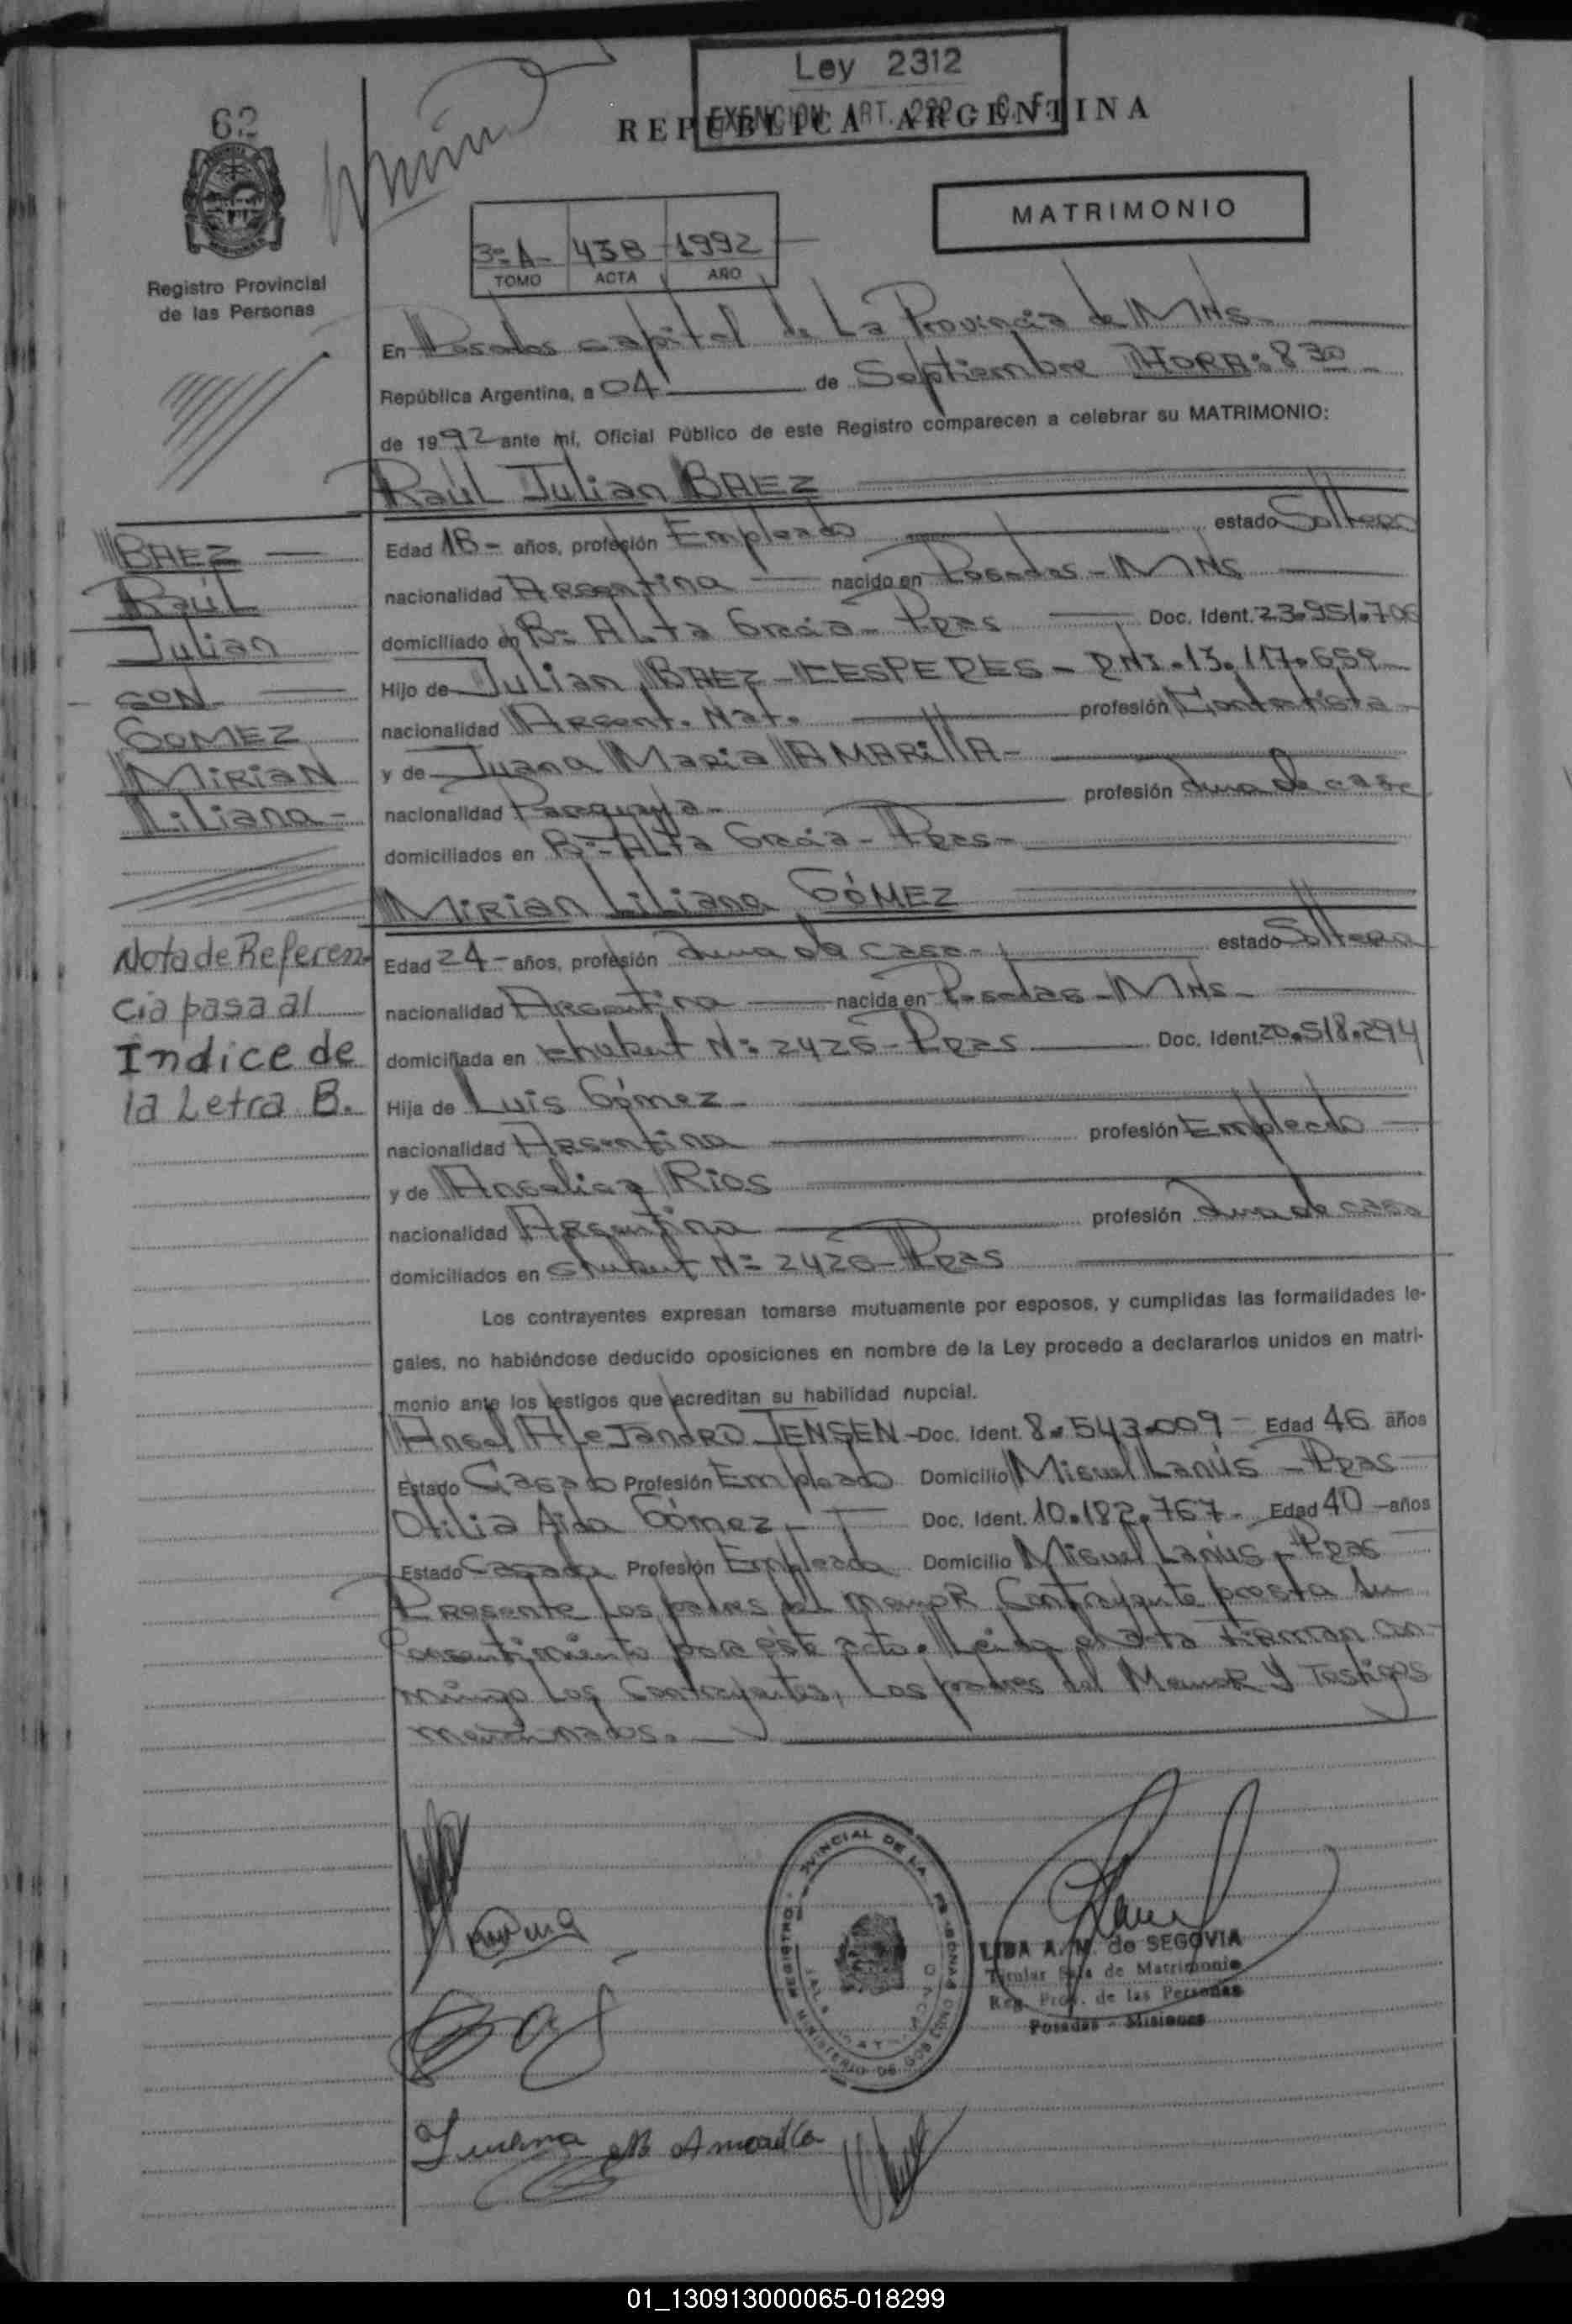 Ley 2312
EXENCION ART.
REPUBLICA ARGENTINA
62
MATRIMONIO
3º A- 438 - 1992
TOMO ACTA AÑO
Registro Provincial
de las Personas
En Posadas capital de La Provincia de Mnes-
República Argentina, a 04 de Septiembre HORA: 8 30
de 1992 ante mí, Oficial Público de este Registro comparecen a celebrar su MATRIMONIO:
Raúl Julian BAEZ
Edad 18- años, profesión Empleado estado Soltero
nacionalidad Argentina nacido en Posadas - Mnes
domiciliado en Bº ALta Gracia - Pdas Doc. Ident. 23.951.706
Hijo de Julian BAEZ - CESPEDES - DNI. 13.117.659
nacionalidad Argent. Nat. profesión
y de Juana Maria AMARILLA-
nacionalidad Paraguaya- profesión Ama de casa
domiciliados en Bº- ALta Gracia - Pdas-
BAEZ
Raúl
Julian
CON
GOMEZ
MIRIAN
Liliana-
Mirian Liliana GÓMEZ
Edad 24- años, profesión Ama de casa- estado Soltera
nacionalidad Argentina nacida en Posadas - Mnes-
domiciliada en Chubut Nº 2426 - Pdas Doc. Ident. 20.518.294
Hija de Luis Gómez-
nacionalidad Argentina profesión Empleado
y de Angelica Rios
nacionalidad Argentina profesión Ama de casa
domiciliados en Chubut Nº 2426 - Pdas
Nota de Referen-
cia pasa al
Indice de
la Letra B.
Los contrayentes expresan tomarse mutuamente por esposos, y cumplidas las formalidades le-
gales, no habiéndose deducido oposiciones en nombre de la Ley procedo a declararlos unidos en matri-
monio ante los testigos que acreditan su habilidad nupcial.
Angel Alejandro JENSEN - Doc. Ident. 8.543.009 - Edad 46 años
Estado Casado Profesión Empleado Domicilio Miguel Lanús - Pdas
Otilia Aida Gómez - Doc. Ident. 10.182.767- Edad 40 - años
Estado Casada Profesión Empleada Domicilio Miguel Lanús - Pdas
Presente Los padres del menor Contrayente presta su
Consentimiento para éste acto. Leida el acta Firman con-
migo Los Contrayentes, Los padres del Menor y Testigos
mencionados.
REGISTRO PROVINCIAL DE LAS PERSONAS
MINISTERIO DE GOB
LIDA A. M. de SEGOVIA
Titular Sala de Matrimonio
Reg. Prov. de las Personas
Posadas - Misiones
Juana M Amarilla
01_130913000065-018299